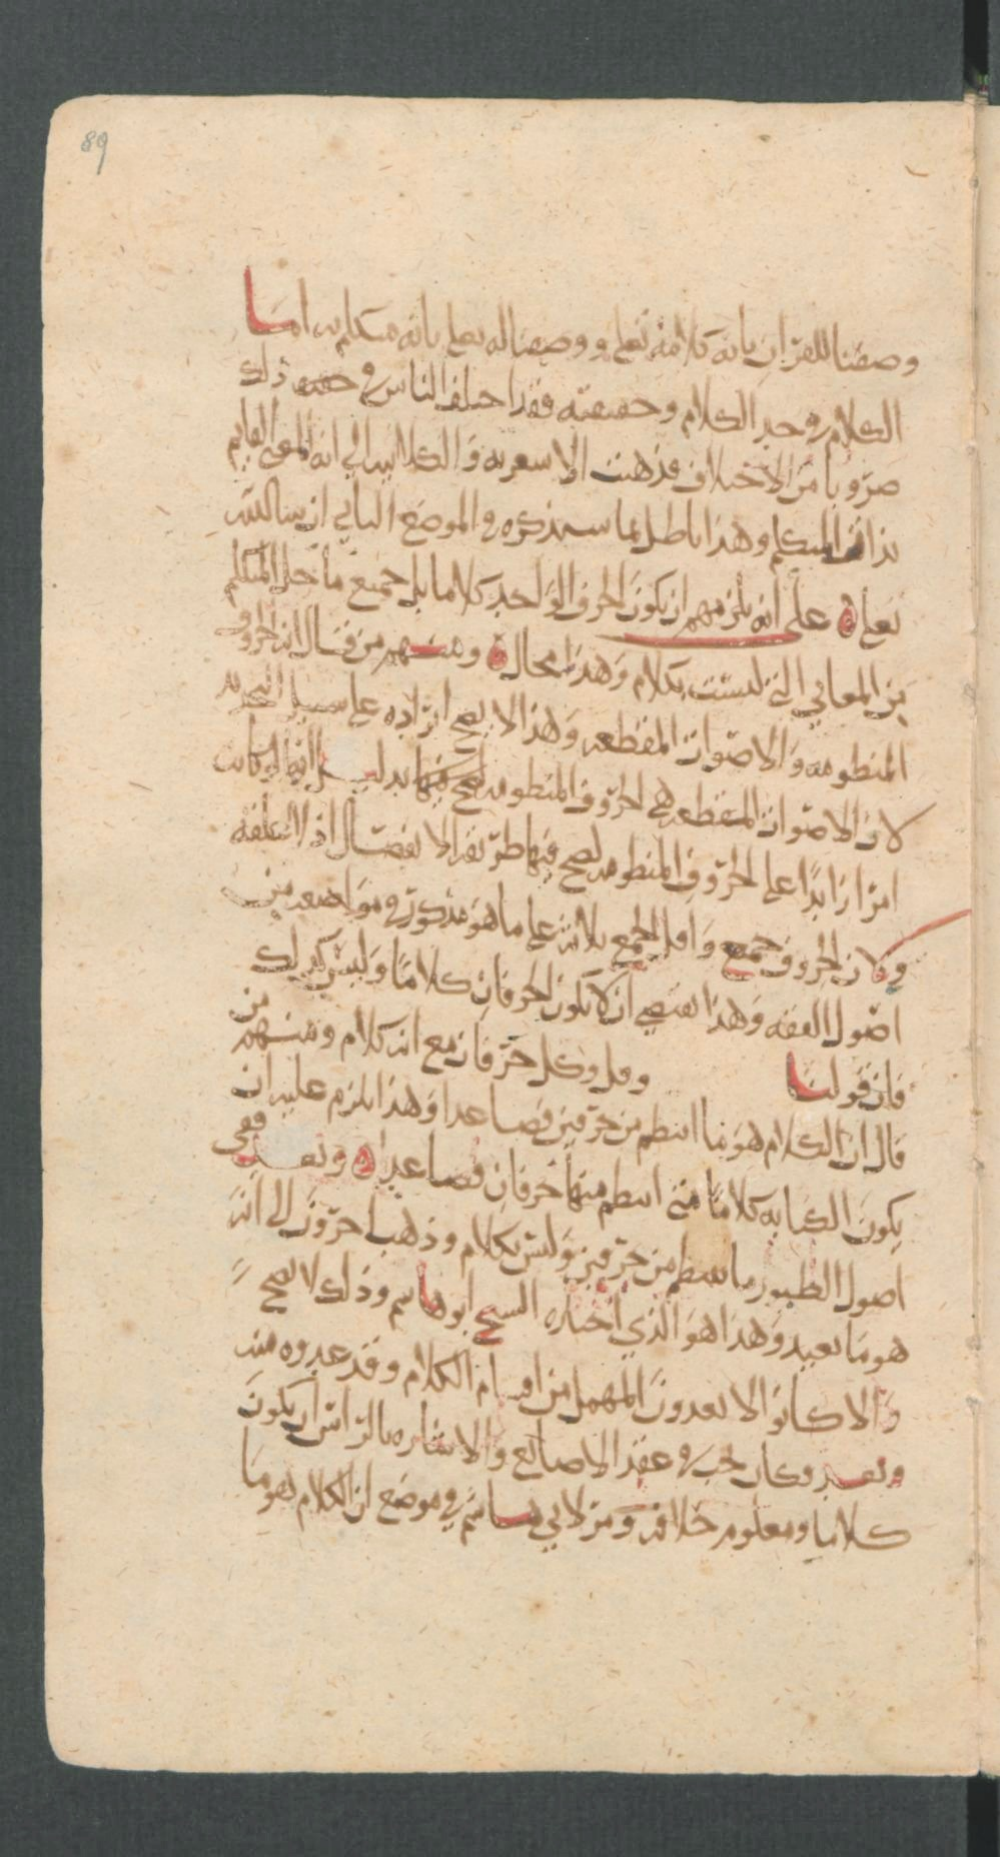 89
وصفنا للقران بانه كلامه تعلى ووصفنا له تعلى بانه متكلم به اما
الكلام في حد الكلام وحقيقته فقد اختلف الناس في ذلك
ضروبا من الاختلاف فذهبت الاشعريه والكلابيه الى انه المعنى القايم
بذات المتكلم وهذا باطل لما سنذكره في الموضع الثاني ان شا الله
تعلى على انه يلزمهم ان يكون الحرف الواحد كلاما بل جميع ما حل المتكلم
من المعاني التي ليست بكلام وهذا محال ومنهم من قال انه الحروف
المنظومه والاصوات المقطعه وهذا لا يصح ايراده على سبيل التحديد
لان الاصوات المقطعه هي الحروف المنظومه بدليل انها لو كانت
امرا زايدا على الحروف المنظومه لصح فيها طريقه الانفصال اذ لا علقه
ولان الحروف جمع واقل الجمع ثلاثه على ما هو مذكور في مواضعه من
اصول الفقه وهذا يقتضي ان لا يكون الحرفان كلاما وليس كذلك
فان قولنا وقل وكل حرفان مع انه كلام ومنهم من
قال ان الكلام هو ما انتظم من حرفين فصاعدا وهذا يلزم عليه ان
يكون الكتابه كلاما متى انتظم منها حرفان فصاعدا وبعد ففي
اصول الطيور ما ينتظم من حرفين وليس بكلام وذهب اخرون الى انه
هو ما يفيد وهذا هو الذي اختاره الشيخ ابو هاشم وذلك لا يصح
والا كانوا لا يعدون المهمل من اقسام الكلام وقد عدوه منه
وبعد فكان يجب في عقد الاصابع والاشاره بالراس ان يكون
كلاما ومعلوم خلافه ومر لابي هاشم في موضع ان الكلام هو ما